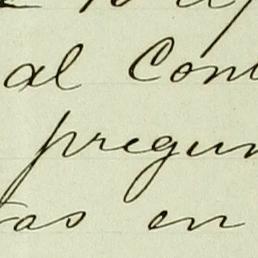 al Con
pregun
as en